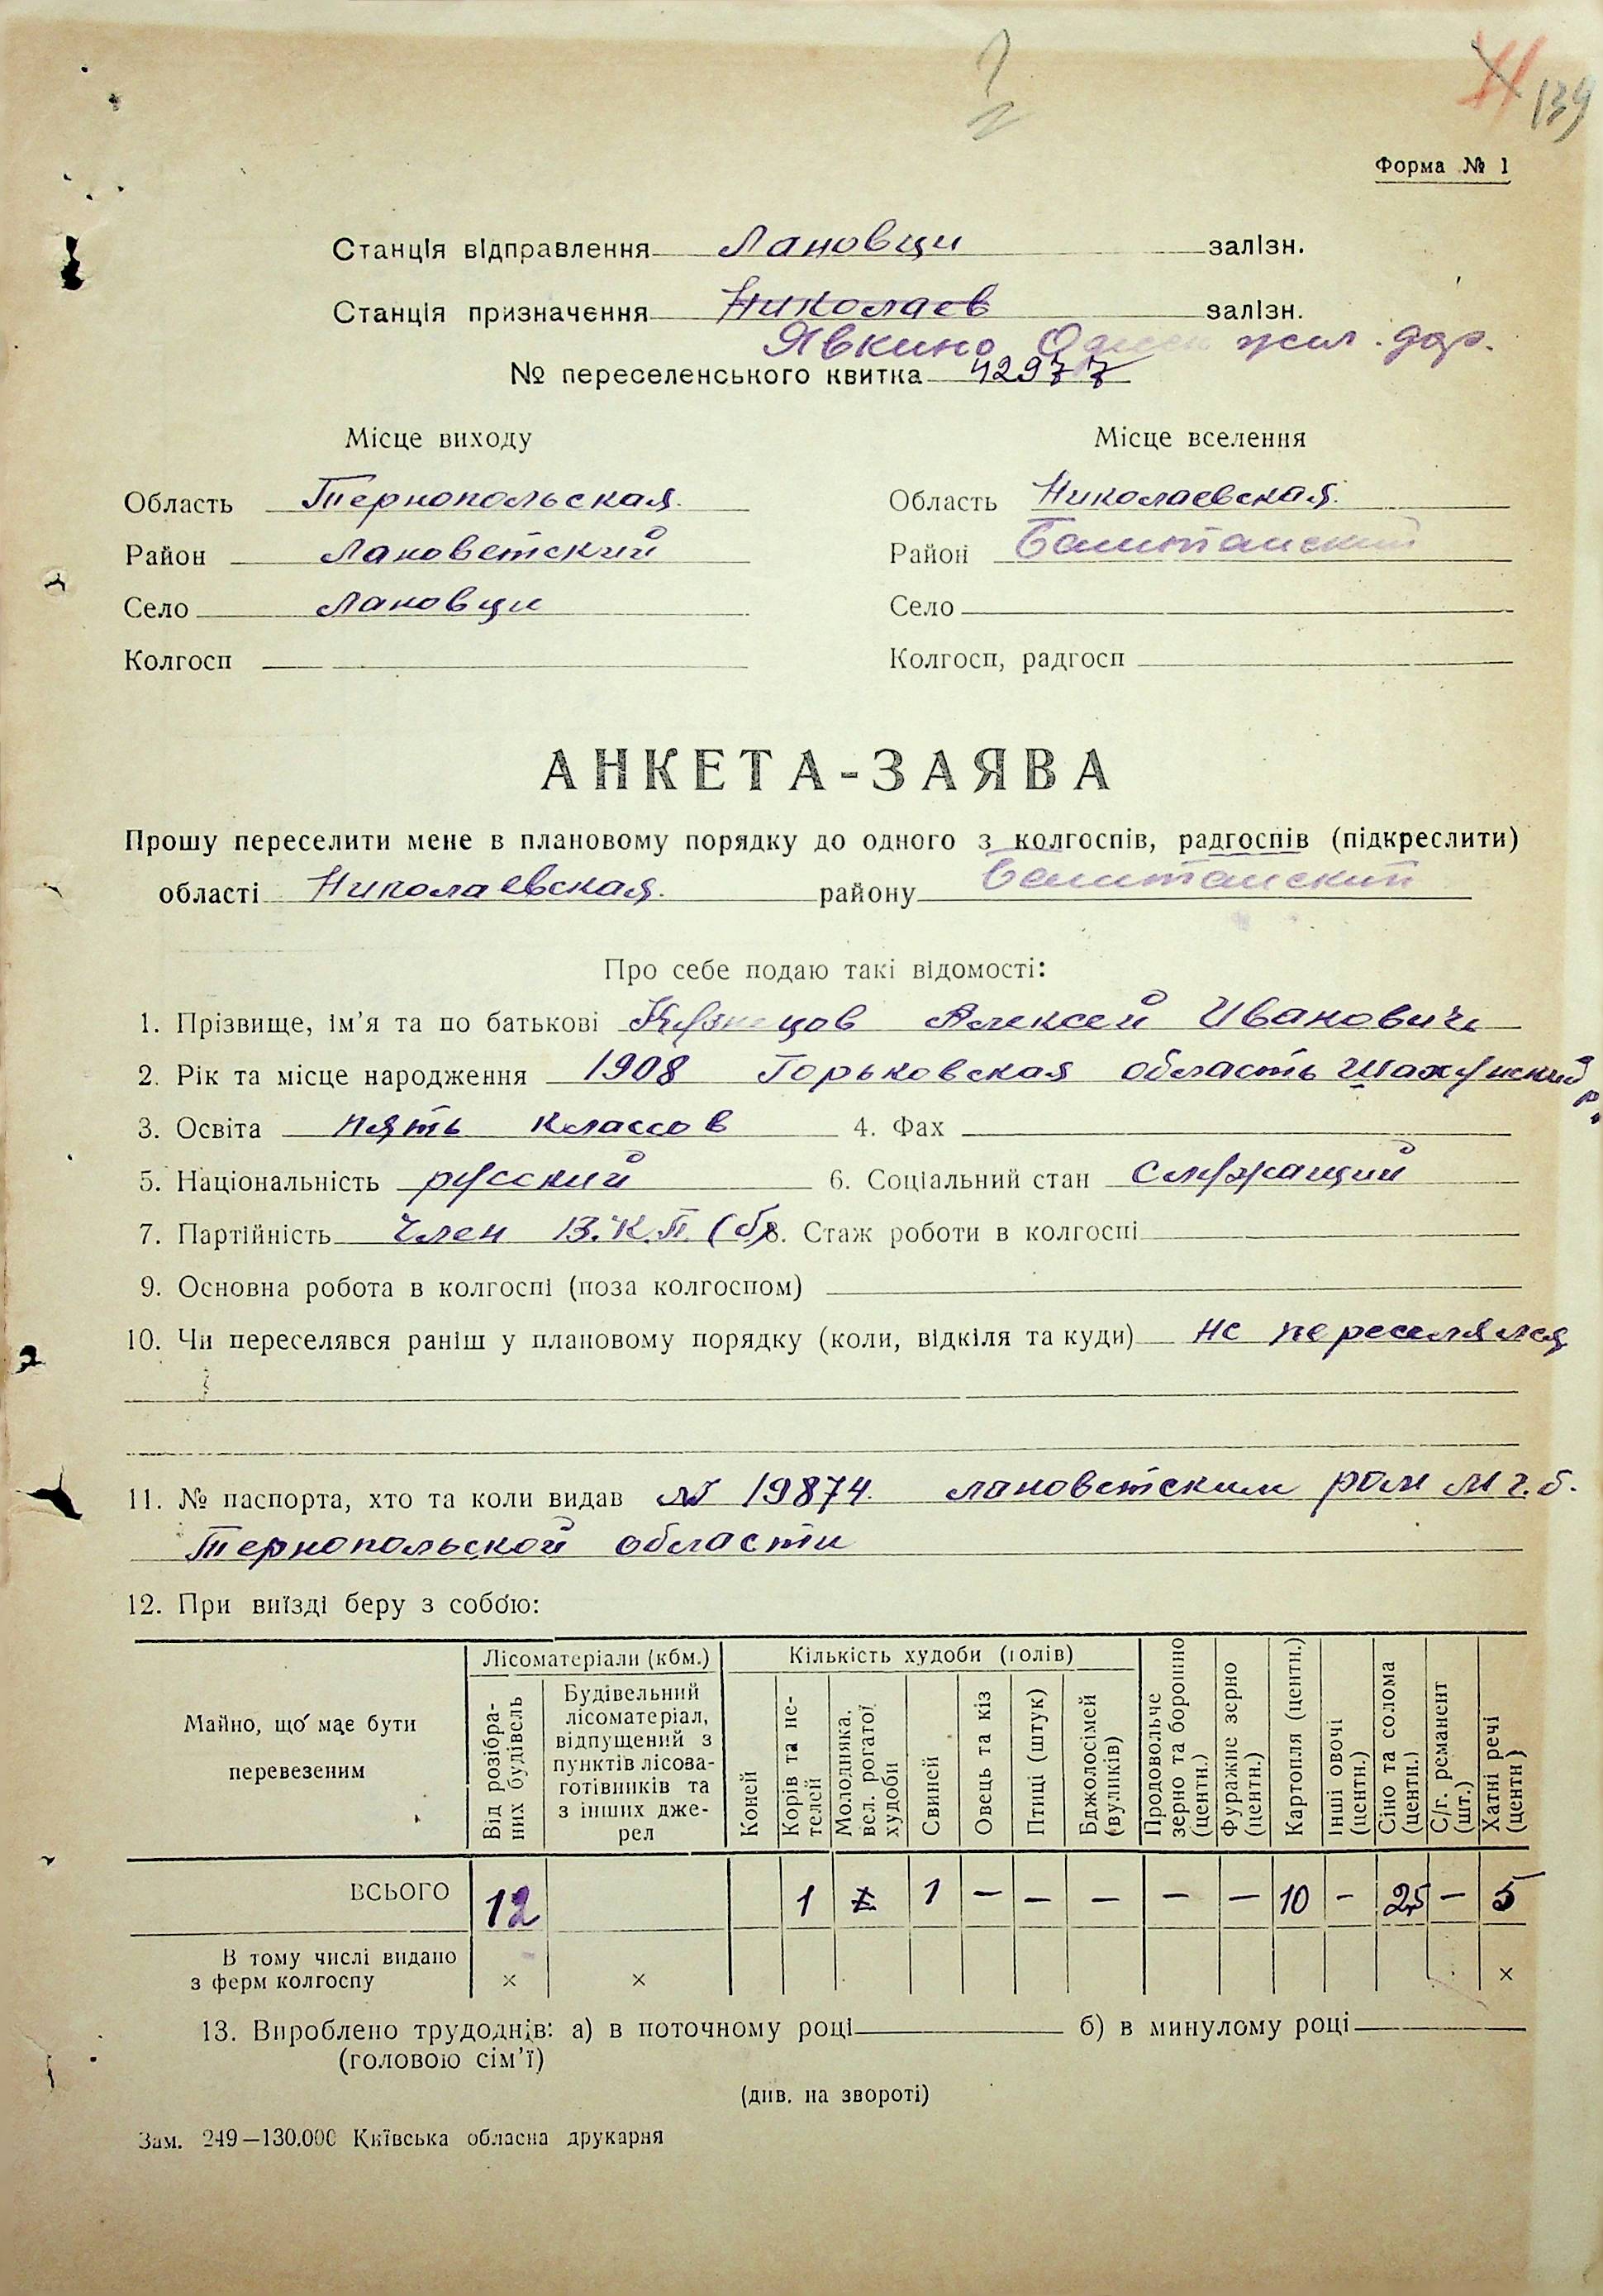 139
Форма № 1
Станція відправлення Лановци залізн.
Станція призначення Николаев залізн.
Явкино Одесск жел. дор.
№ переселенського квитка 42977
Місце виходу Місце вселення
Область Тернопольская Область Николаевская
Район Лановетский Район Баштанский
Село Лановци Село
Колгосп Колгосп, радгосп
АНКЕТА-ЗАЯВА
Прошу переселити мене в плановому порядку до одного з колгоспів, радгоспів (підкреслити)
області Николаевская району Баштанский
Про себе подаю такі відомості:
1. Прізвище, ім’я та по батькові Кузнецов Алексей Иванович
2. Рік та місце народження 1908 Горьковская область Шахунский р-н
3. Освіта пять классов 4. Фах
5. Національність русский 6. Соціальний стан Служащий
7. Партійність Член В.К.П.(б) 8. Стаж роботи в колгоспі
9. Основна робота в колгоспі (поза колгоспом)
10. Чи переселявся раніш у плановому порядку (коли, відкіля та куди) не переселялся
11. № паспорта, хто та коли видав № 19874 лановетским ром М.Г.Б.
Тернопольской области
12. При виїзді беру з собою:
Майно, що має бути перевезеним
Лісоматеріали (кбм.)
Від розібраних будівель
Будівельний лісоматеріал, відпущений з пунктів лісозаготівників та з інших джерел
Кількість худоби (голів)
Коней
Корів та нетелей
Молодняка, вел. рогатої худоби
Свиней
Овець та кіз
Птиці (штук)
Бджолосімей (вуликів)
Продовольче зерно та борошно (центн.)
Фуражне зерно (центн.)
Картопля (центн.)
Інші овочі (центн.)
Сіно та солома (центн.)
С/г. реманент (шт.)
Хатні речі (центн)
ВСЬОГО 12 1 1 — — — — — 10 — 25 — 5
В тому числі видано
з ферм колгоспу × × ×
13. Вироблено трудоднів: а) в поточному році б) в минулому році
(головою сім’ї)
(див. на звороті)
Зам. 249—130.000 Київська обласна друкарня